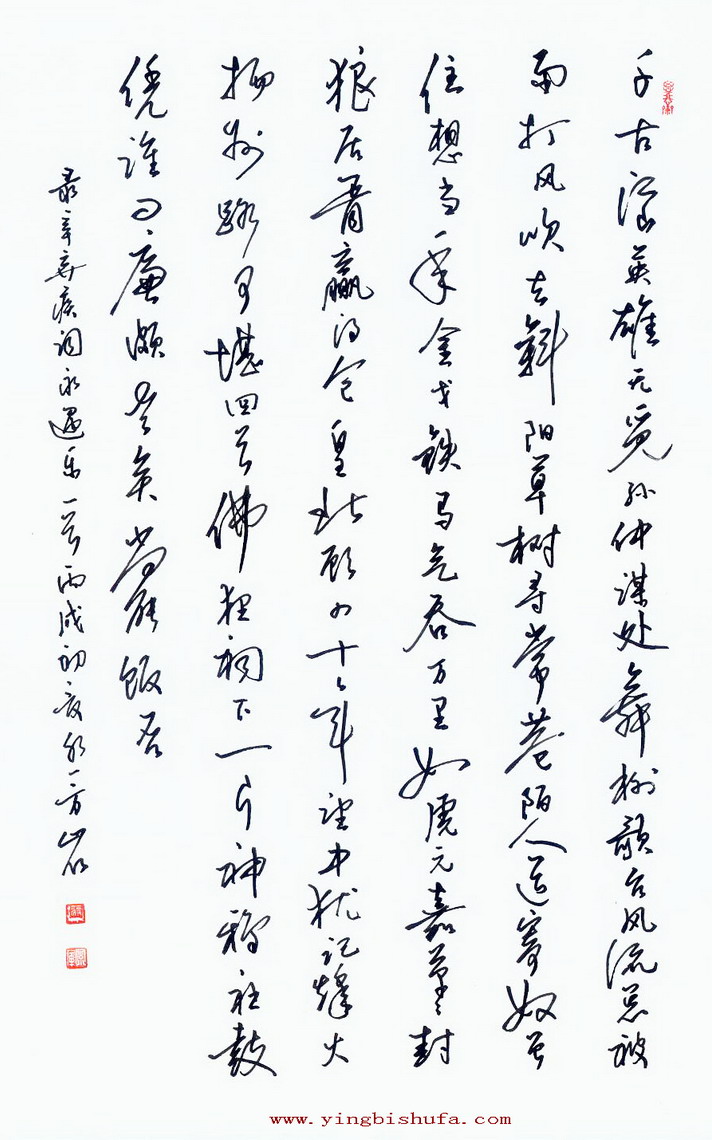 千古江山英雄无觅孙仲谋处舞榭歌台风流总被
雨打风吹去斜阳草树寻常巷陌人道寄奴曾
住想当年金戈铁马气吞万里如虎元嘉草草封
狼居胥赢得仓皇北顾四十三年望中犹记烽火
扬州路可堪回首佛狸祠下一片神鸦社鼓
凭谁问廉颇老矣尚能饭否
录辛弃疾词永遇乐一首丙戌初夏
www.yingbishufa.com